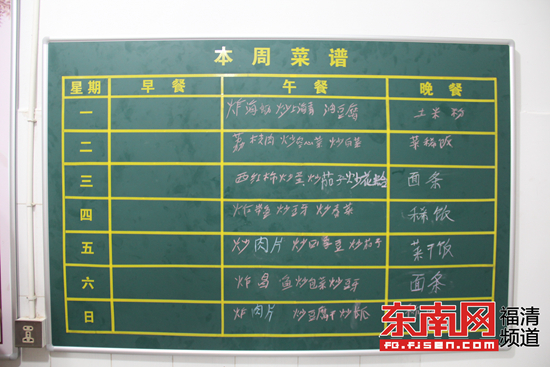 本周菜谱
星期 早餐 午餐 晚餐
一 炒上海青 油豆腐 土米粉
二 荔枝肉 炒包心菜 炒白菜 菜稀饭
三 西红柿炒蛋 炒茄子 炒花蛤 面条
四 炒豆牙 稀饭
五 炒肉片 炒四季豆 炒茄子 菜干饭
六 鱼 炒包菜 炒豆牙 面条
日 炸肉片 炒豆腐干
东南网 福清频道
FQ.FJSEN.COM